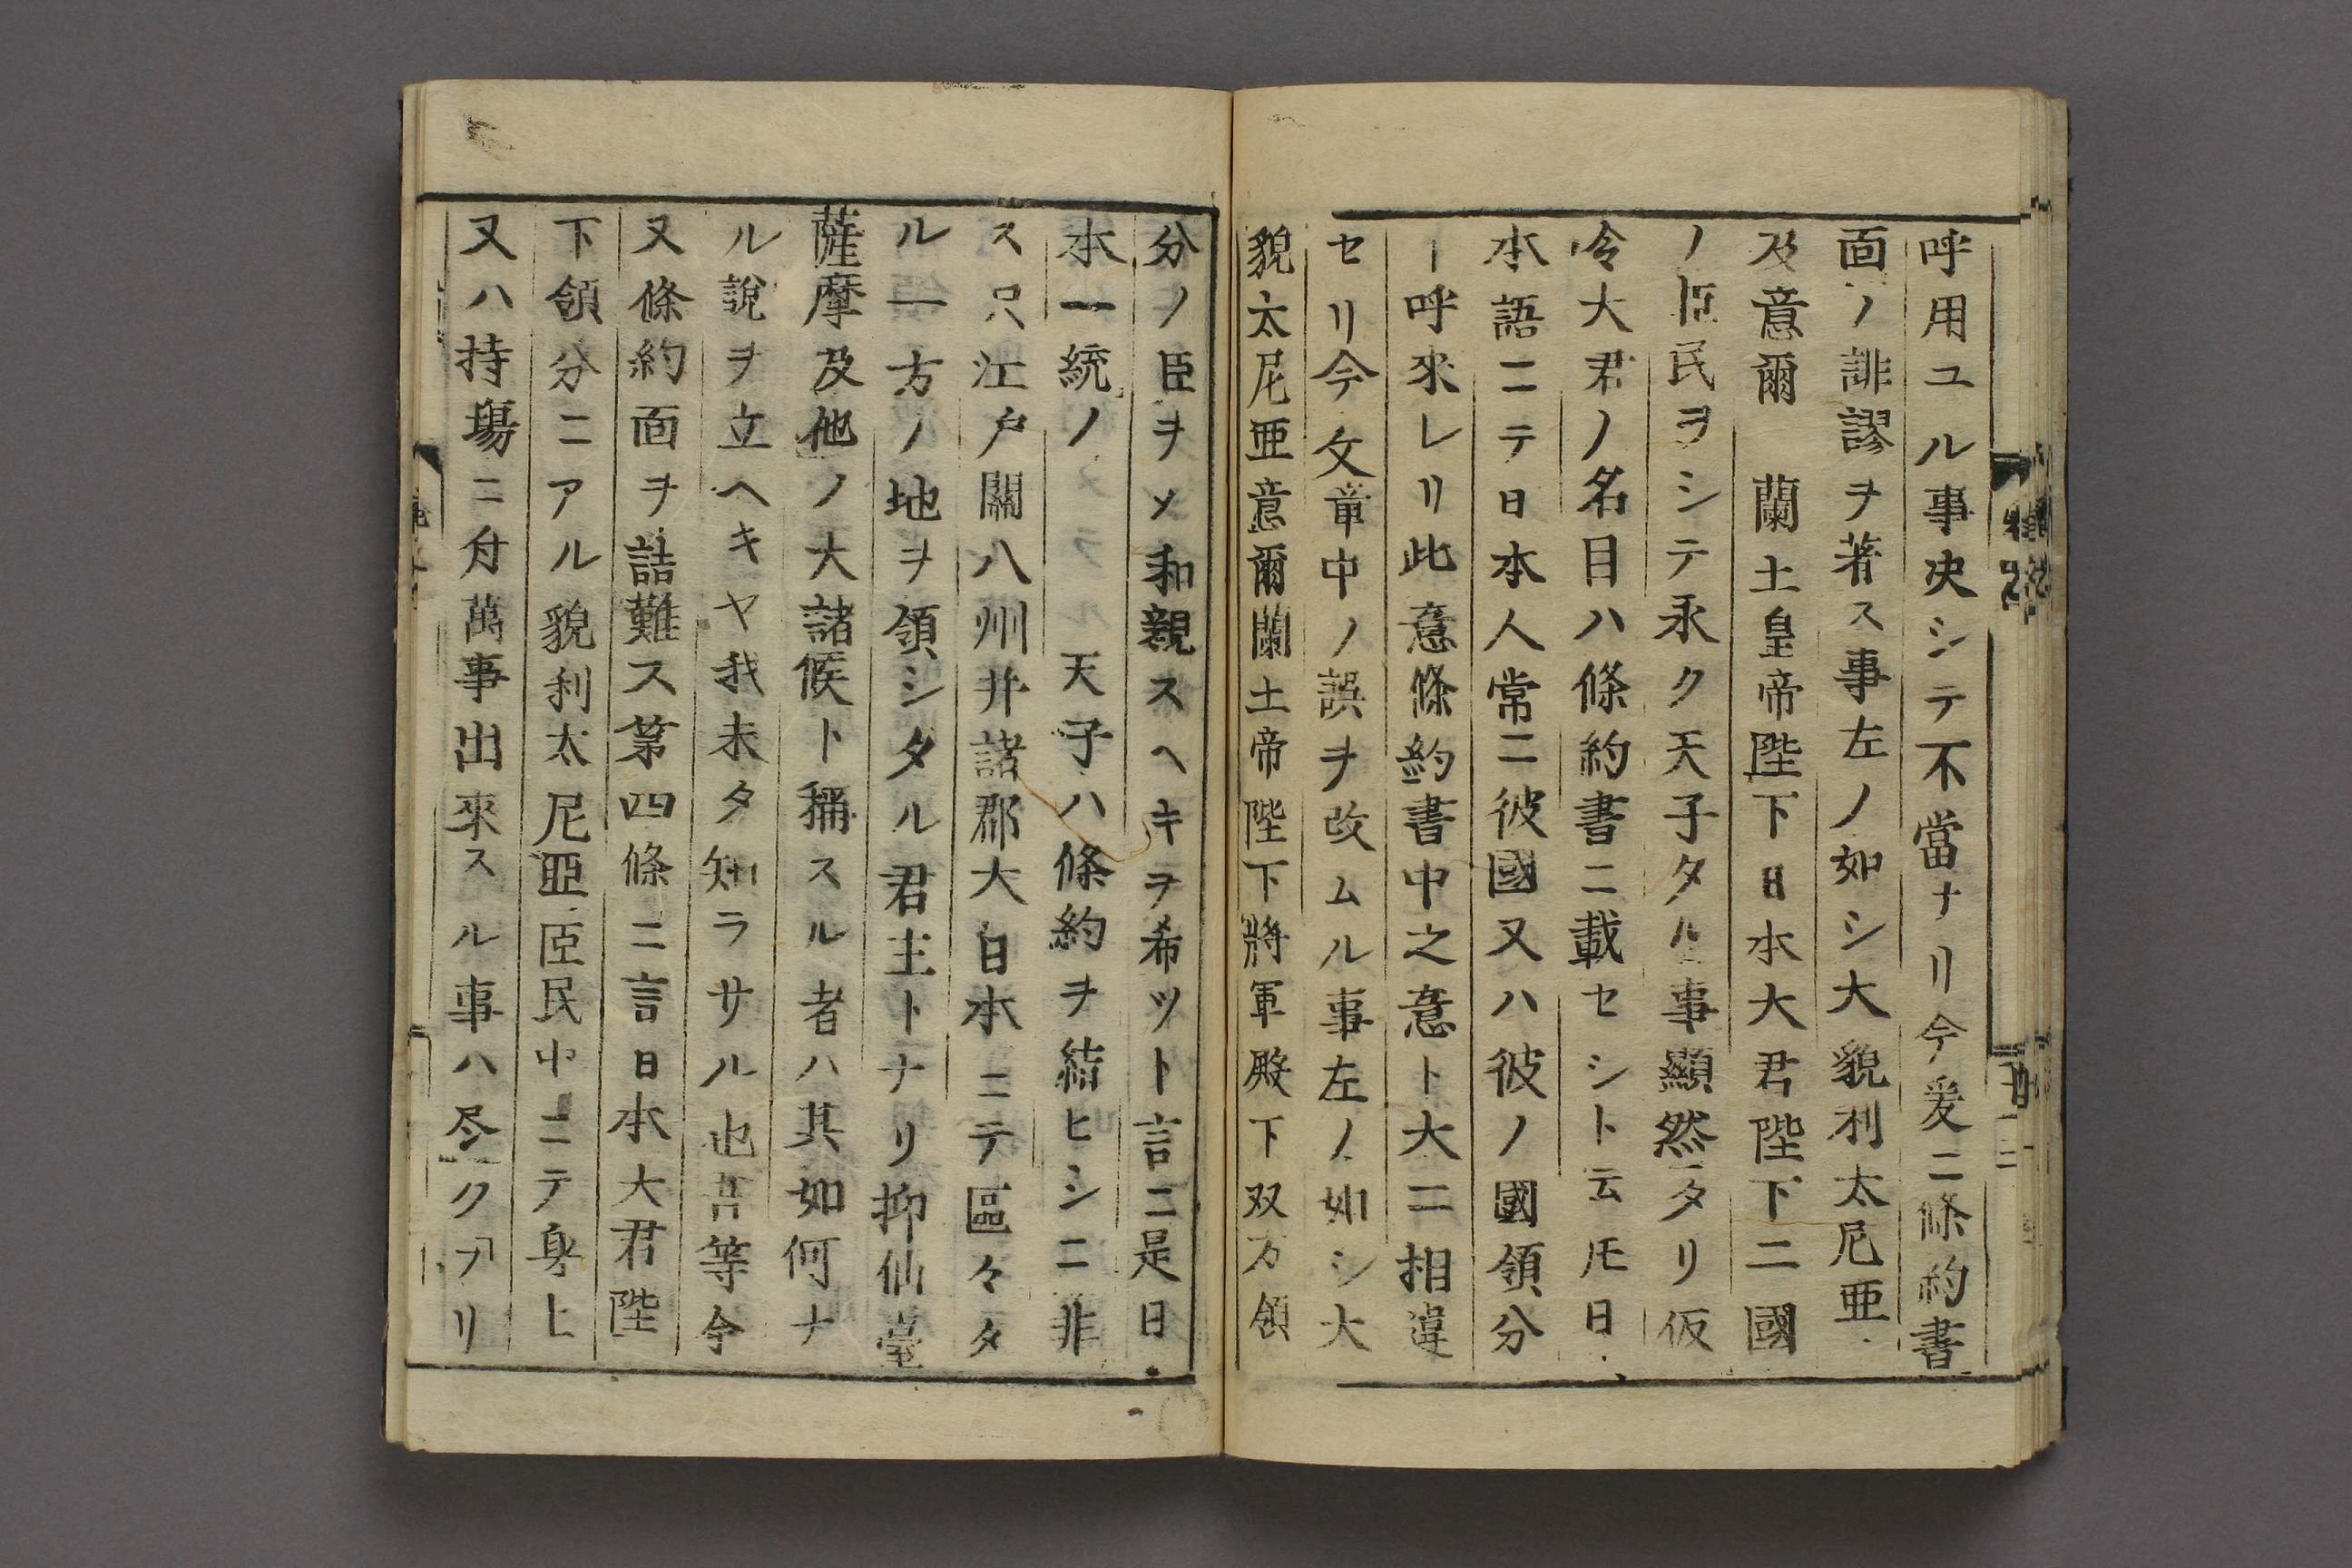 呼用ユル事決シテ不當ナリ今爰ニ條約書
面ノ誹謬ヲ著ス事左ノ如シ大貌利太尼亜
及意爾　蘭土皇帝陛下日本大君陛下二國
ノ臣民ヲシテ永ク天子タル事顯然タリ仮
令大君ノ名目ハ條約書ニ載セシト云𪜈日
本語ニテ日本人常ニ彼國又ハ彼ノ國領分
ー呼來レリ此意條約書中之意ト大ニ相違
セリ今文章中ノ誤ヲ改ムル事左ノ如シ大
貌太尼亜意爾蘭土帝陛下將軍殿下双方領
分ノ臣ヲメ和親スヘキヲ希ツト言ニ是日
本一統ノ　天子ハ條約ヲ結ヒシニ非
ス只江戸關八州并諸郡大日本ニテ區々タ
ル一方ノ地ヲ領シタル君主トナリ抑仙臺
薩摩及他ノ大諸候ト稱スル者ハ其如何ナ
ル說ヲ立ヘキヤ我未タ知ラサル也吾等今
又條約面ヲ詰難ス第四條ニ言日本大君陛
下領分ニアル貌利太尼亜臣民中ニテ身上
又ハ持場ニ付萬事出來スル事ハ尽クヿリ